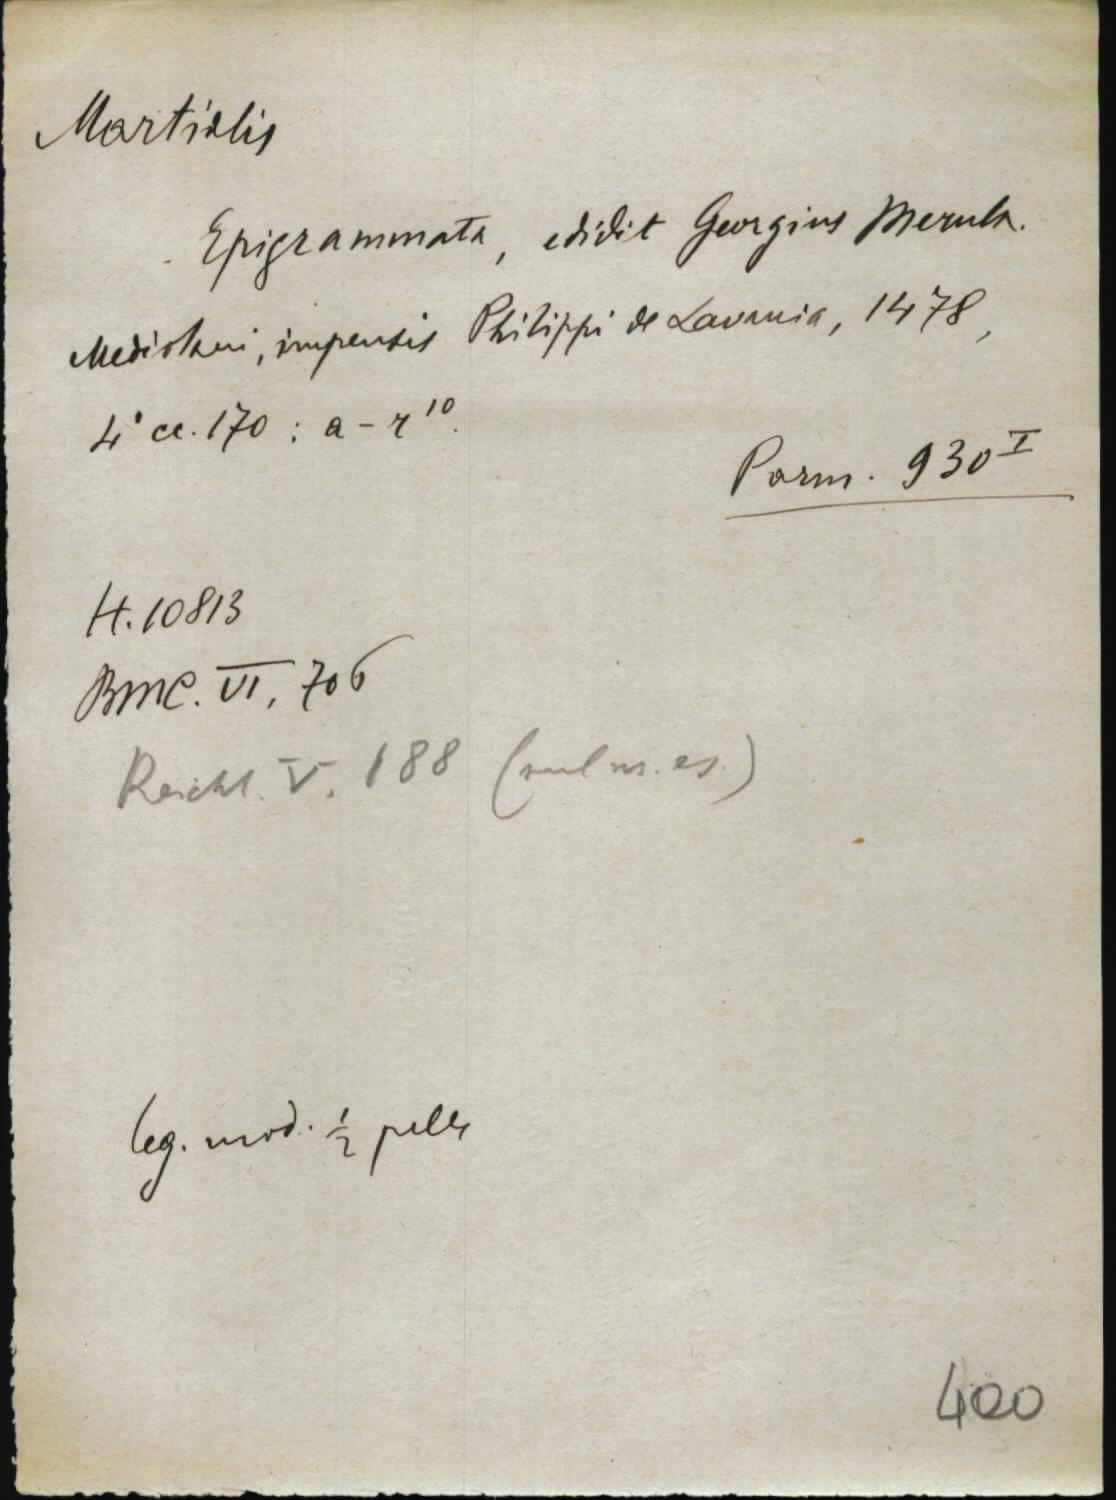 Martialis
Epigrammata, edidit Georgius Merula.
Mediolani, impensis Philippi de Lavania, 1478,
4° cc. 170 : a-r¹⁰.
Parm. 930ᴵ
H. 10813
BMC. VI, 706
Reichl. V. 188 (sul ns. es.)
leg. mod. ½ pelle
400